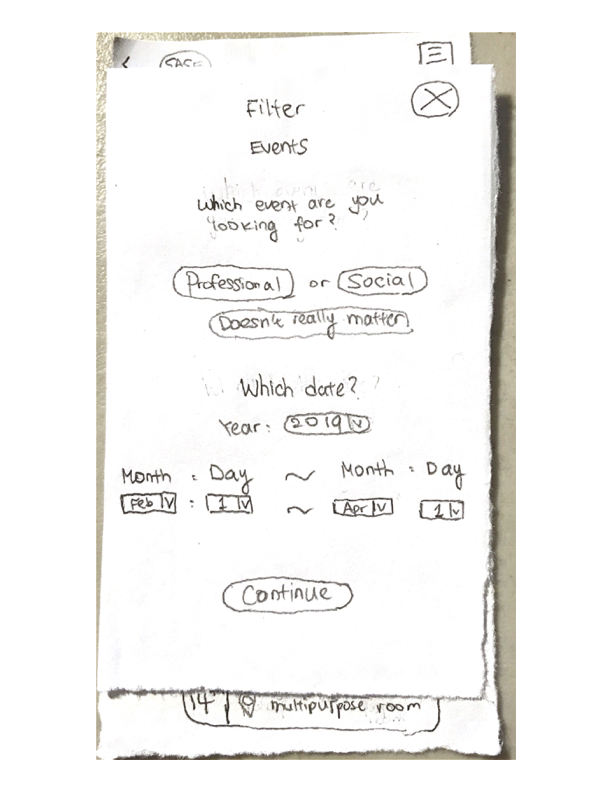 SASE
Filter
Events
Which event are you
looking for?
Professional or Social
Doesn't really matter
Which date?
Year: 2019 v
Month : Day ~ Month : Day
Feb v : 1 v ~ Apr v 1 v
Continue
14 multipurpose room